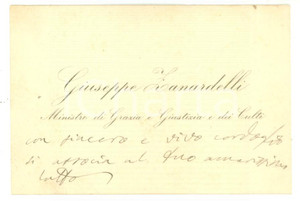 Giuseppe Zanardelli
Ministro di Grazia e Giustizia e dei Culti
con sincero e vivo cordoglio
si associa al Suo amarissimo
lutto